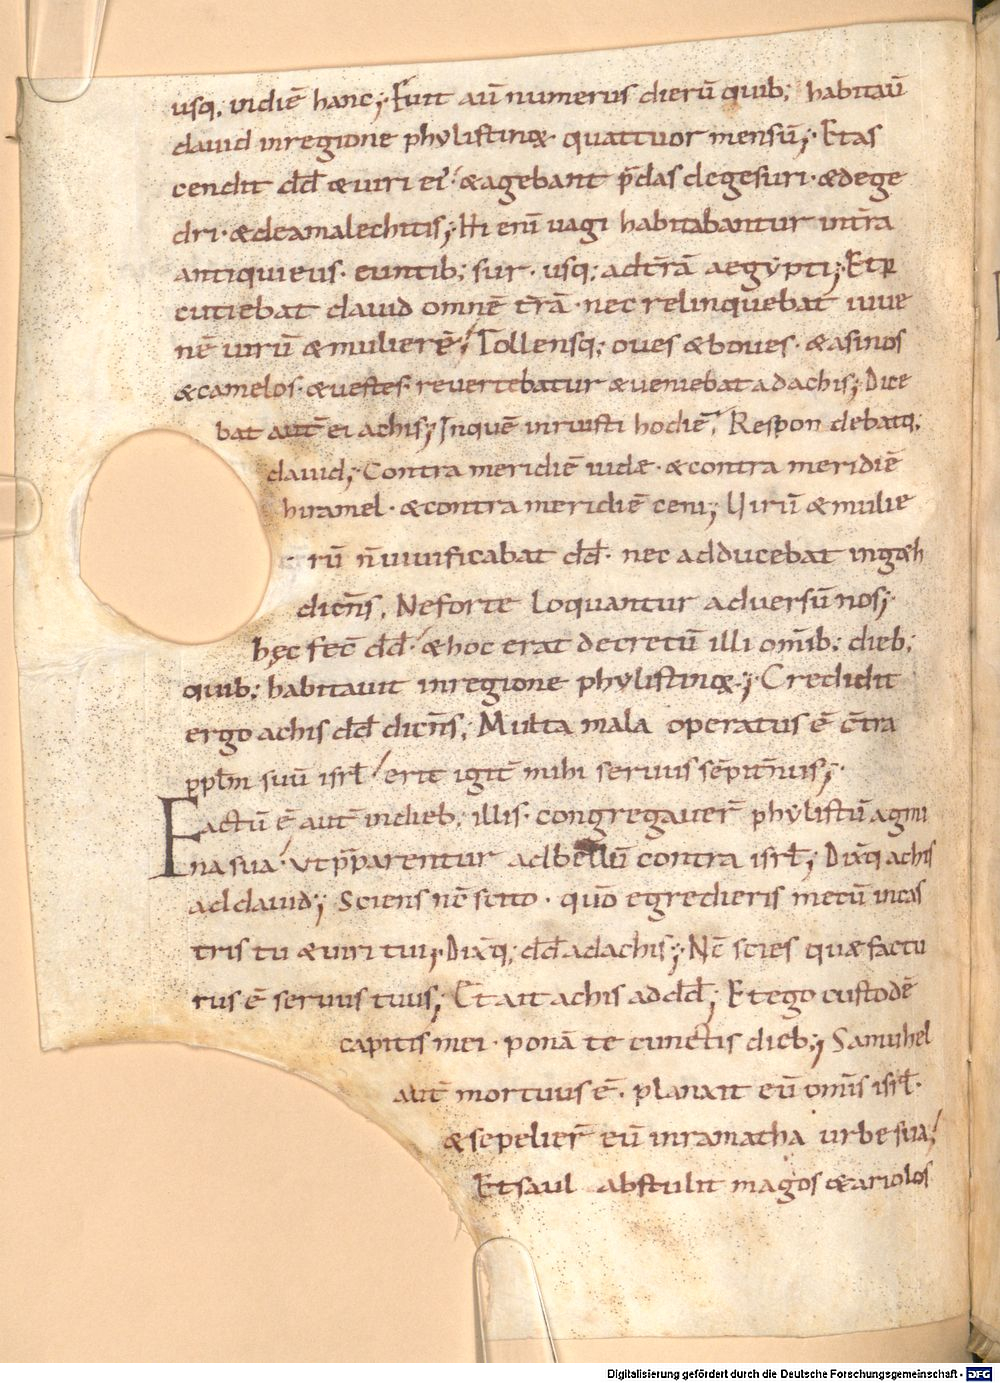 usq; indiē hanc;· Fuit aū numerus dierū quib; habitaū
dauid inregione phylistinoꝝ· quattuor mensiū;· Etas
cendit dd̄ &uiri ei'· &agebant p̄das degesuri· &dege
dri· &deamalechitis;· Hi eni̅ uagi habitabantur int̄ra
antiquieus· euntib; sur· usq; adt̄rā aegypti;· Etp
cutiebat dauid omnē t̄rā· nec relinquebat uiue
nē uirū &mulierē; Tollensq; oues &boues· &asinos
&camelos· &uestes· reuertebatur &ueniebat adachis; Dice
bat aut̄ ei achis; Inquē inruisti hodiē; Respon debatq;
dauid; Contra meridiē iudæ· &contra meridiē
hiramel· &contra meridiē ceni; Uirū &mulie
rū n̄uiuificabat dd̄· nec adducebat ingæh
dicn̄s; Neforte loquantur aduersū nos;·
hęc fec̄ dd̄· &hoc erat decretū illi om̄ib; dieb;
quib; habitauit inregione phylistinoꝝ·; Credidit
ergo achis dd̄ dicn̄s; Multa mala operatus ē c̄tra
ppl̄m suū isrl̄ erit igit̄ mihi seruus sēpit̄nus;·
Factū ē aut̄ indieb; illis· congregauer̄ phylistiū agmi
na sua· utp̄parentur adbellū contra isrl̄; Dix̄q achis
addauid; Sciens nc̄ scito· quō egredieris mecū incas
tris tu &uiri tui;· Dix̄q; dd̄ adachis;· Nc̄ scies quæ factu
rus ē seruus tuus; Et ait achis ad dd̄; Et ego custodē
capitis mei· ponā te cunctis dieb;; Samuhel
aut̄ mortuus ē· planxit eū omīs isrl̄·
&sepelier̄ eū inramatha urbe sua;
Et saul abstulit magos &ariolos
Digitalisierung gefördert durch die Deutsche Forschungsgemeinschaft - DFG